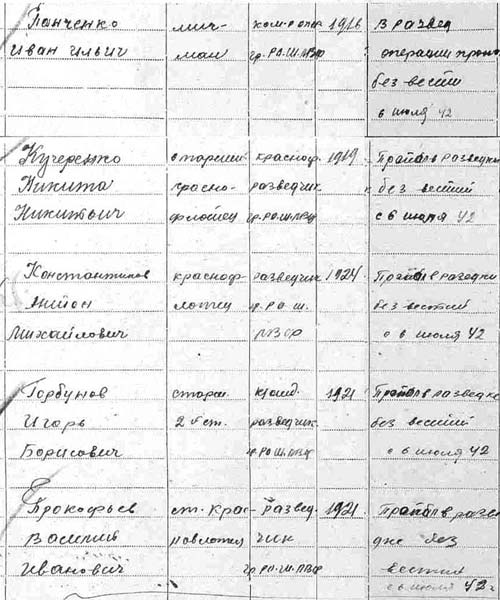 Панченко мич- ком-р опер 1916 В развед
Иван Ильич ман гр. РО. Ш. ПВФ операции
без вести
с 6 июля 42
Кучеренко старший красноф. 1919 Пропал в разведке
Никита красно- разведчик без вестий
Никитович флотец гр. РО. Ш. ПВФ с 6 июля 42
Константинов красноф- разведчик 1924 Пропал в разведке
лотец гр. Р О Ш. без вестий
Михайлович ПВФ с 6 июля 42
Горбунов старш. 1921 Пропал в разведке
Игорь 2 ст. разведчик без вестий
Борисович гр. РО. Ш. ПВФ с 6 июля 42
Прокофьев ст. крас- развед- 1921 Пропал в разве
Василий нофлотец чик дке без
Иванович гр. РО. Ш. ПВФ вестий
с 6 июля 42.